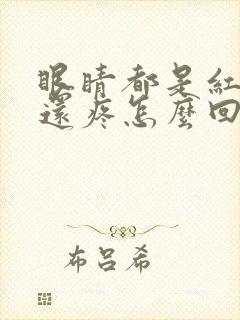 眼睛都是紅
還疼怎麼回
布呂希